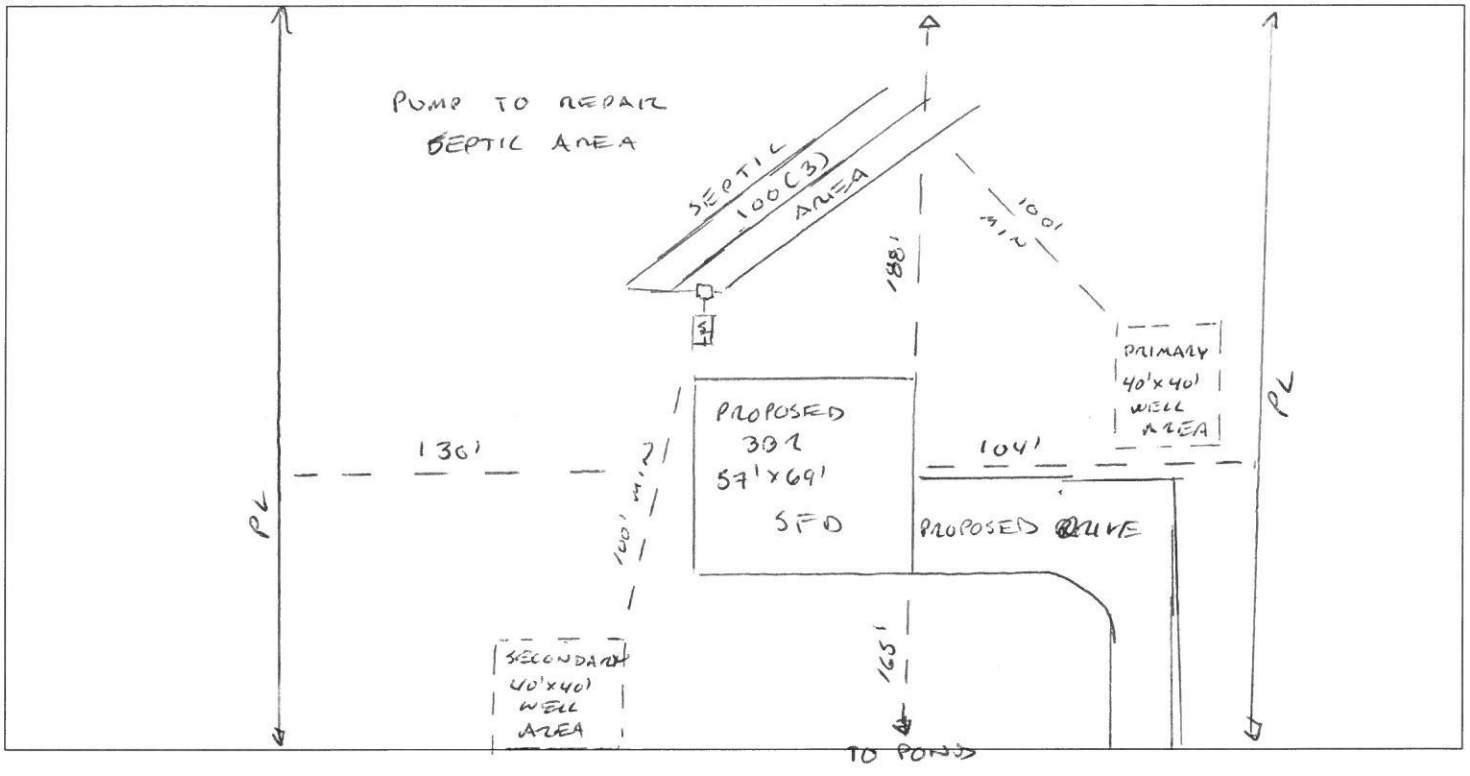 PUMP TO REPAIR
SEPTIC AREA
SEPTIC
100(3)
AREA
188'
100'
MIN
PRIMARY
40'x40'
WELL
AREA
PL
PL
130'
100' MIN
PROPOSED
3BR
57'x69'
SFD
104'
PROPOSED DRIVE
165'
SECONDARY
40'x40'
WELL
AREA
TO POND